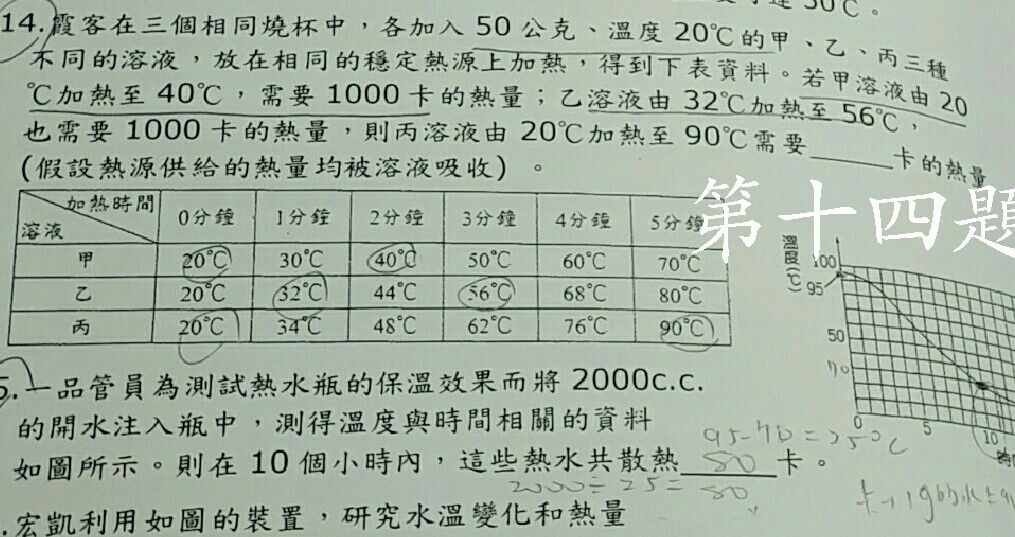 14.霞客在三個相同燒杯中,各加入 50 公克、溫度 20℃的甲、乙、丙三種
不同的溶液,放在相同的穩定熱源上加熱,得到下表資料。若甲溶液由 20
℃加熱至 40℃,需要 1000 卡的熱量;乙溶液由 32℃加熱至 56℃,
也需要 1000 卡的熱量,則丙溶液由 20℃加熱至 90℃需要____卡的熱量
(假設熱源供給的熱量均被溶液吸收)。
加熱時間 溶液 0分鐘 1分鐘 2分鐘 3分鐘 4分鐘 5分鐘
甲 20℃ 30℃ 40℃ 50℃ 60℃ 70℃
乙 20℃ 32℃ 44℃ 56℃ 68℃ 80℃
丙 20℃ 34℃ 48℃ 62℃ 76℃ 90℃
第十四題
溫度(℃)
100
95
50
70
0 5 10
5.一品管員為測試熱水瓶的保溫效果而將 2000c.c.
的開水注入瓶中,測得溫度與時間相關的資料
95-70=25℃
如圖所示。則在 10 個小時內,這些熱水共散熱 80 卡。
2000÷25=80
.宏凱利用如圖的裝置,研究水溫變化和熱量